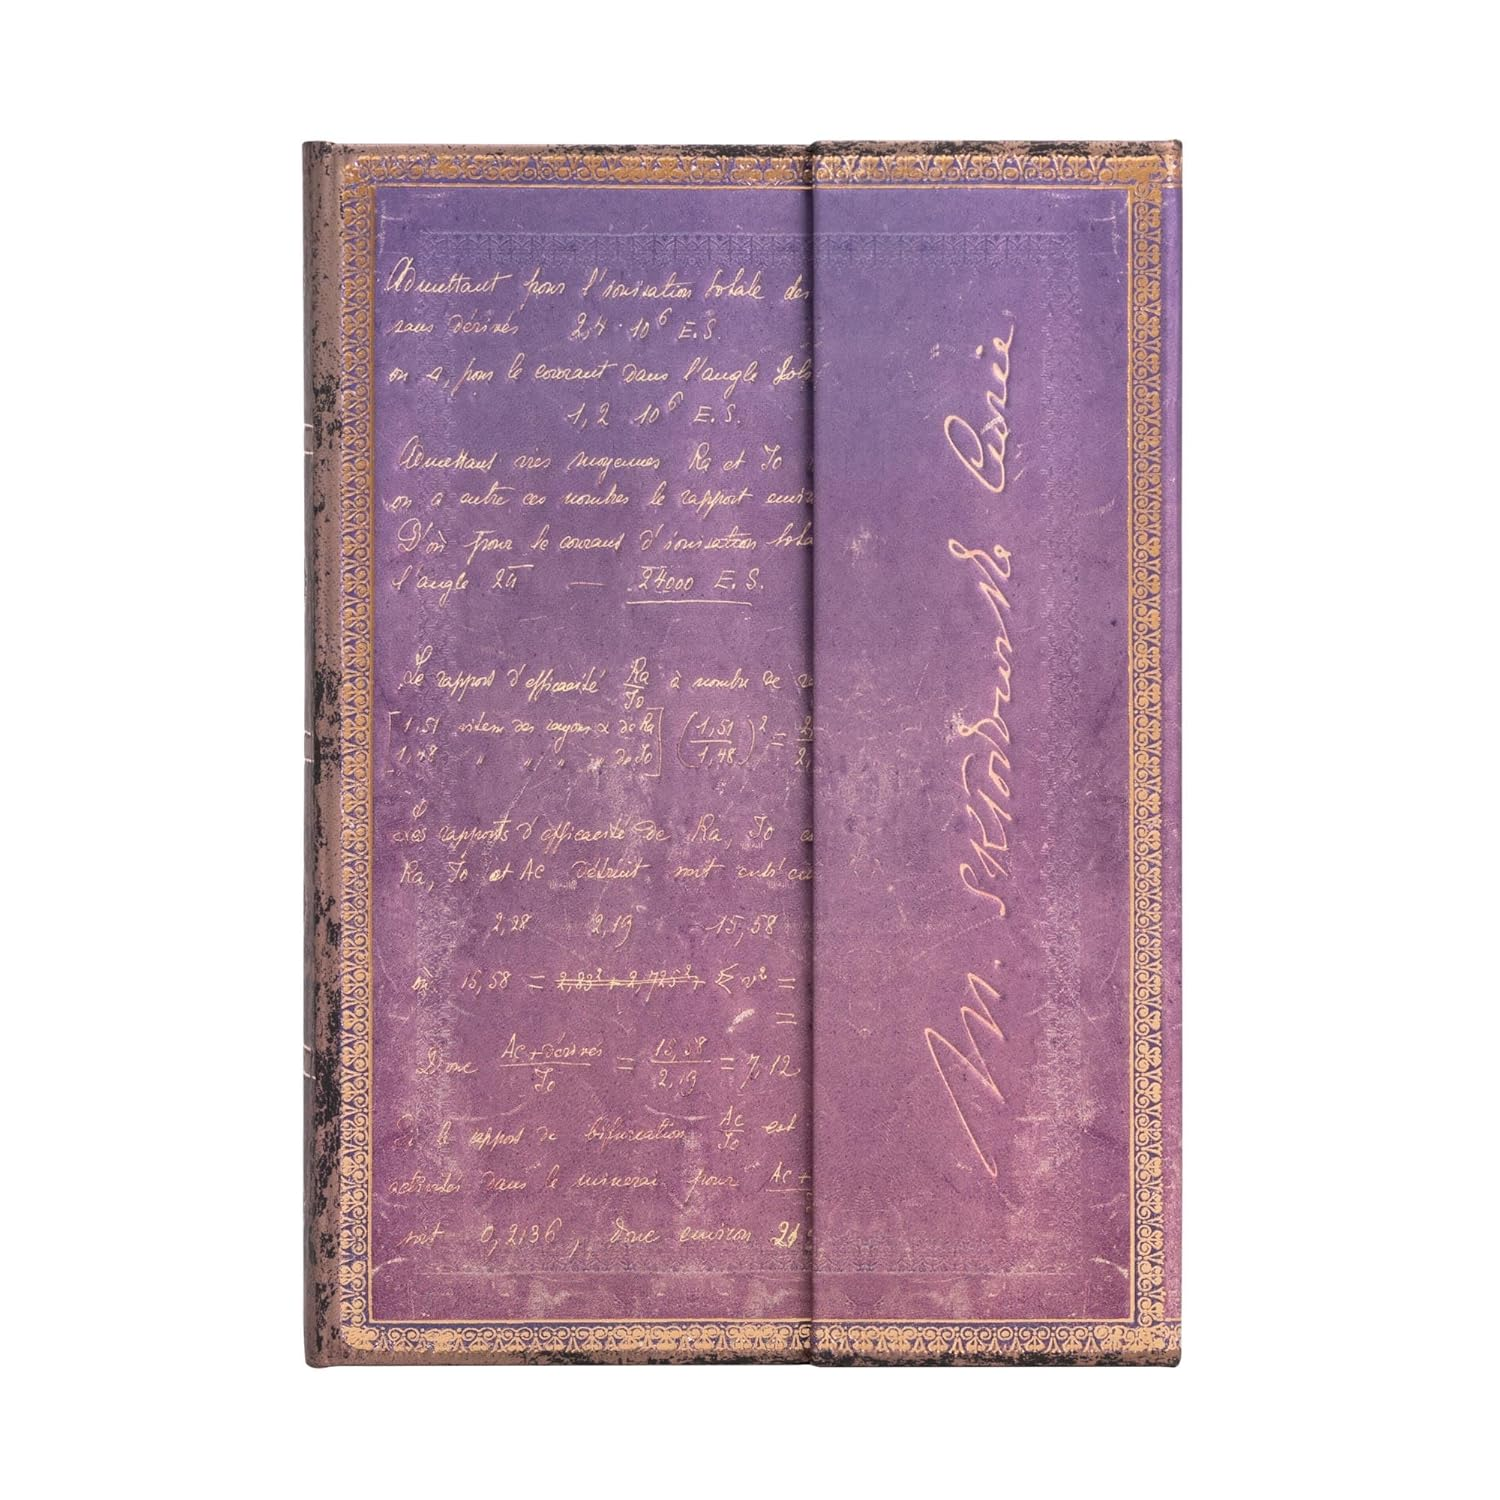 Admettant pour l'ionisation totale des
sans dérivés 2,4 · 10⁶ E.S.
on a, pour le courant dans l'angle
1,2 10⁶ E.S.
Admettant vies moyennes Ra et Io
on a entre ces nombres le rapport
D'où pour le courant d'ionisation
l'angle 2π — 24000 E.S.
Le rapport d'efficacité Ra/Io à nombre de
[1,51 vitesse des rayons α de Ra
1,48 " " " " de Io] (1,51/1,48)² =
Les rapports d'efficacité de Ra, Io
Ra, Io et Ac détruit sont
2,28 2,19 15,58
où 15,58 = 2,89² + 2,725² + Σ v² =
=
Donc Ac + dérivés/Io = 15,58/2,19 = 7,12
Si le rapport de bifurcation Ac/Io est
activités dans le minerai pour Ac +
soit 0,2136, donc environ 21
M. Skłodowska Curie